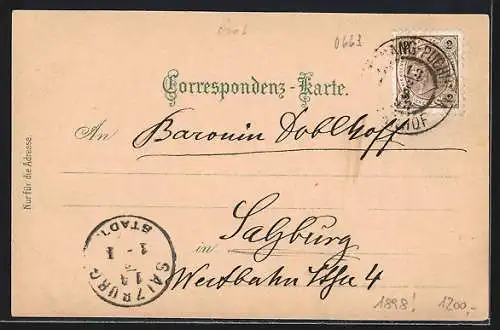 0663
Correspondenz-Karte.
An Baronin Doblhoff
in Salzburg
Westbahn Straße 4
Nur für die Adresse.
SALZBURG
STADT
1898! 1200,-
2 2
HOF